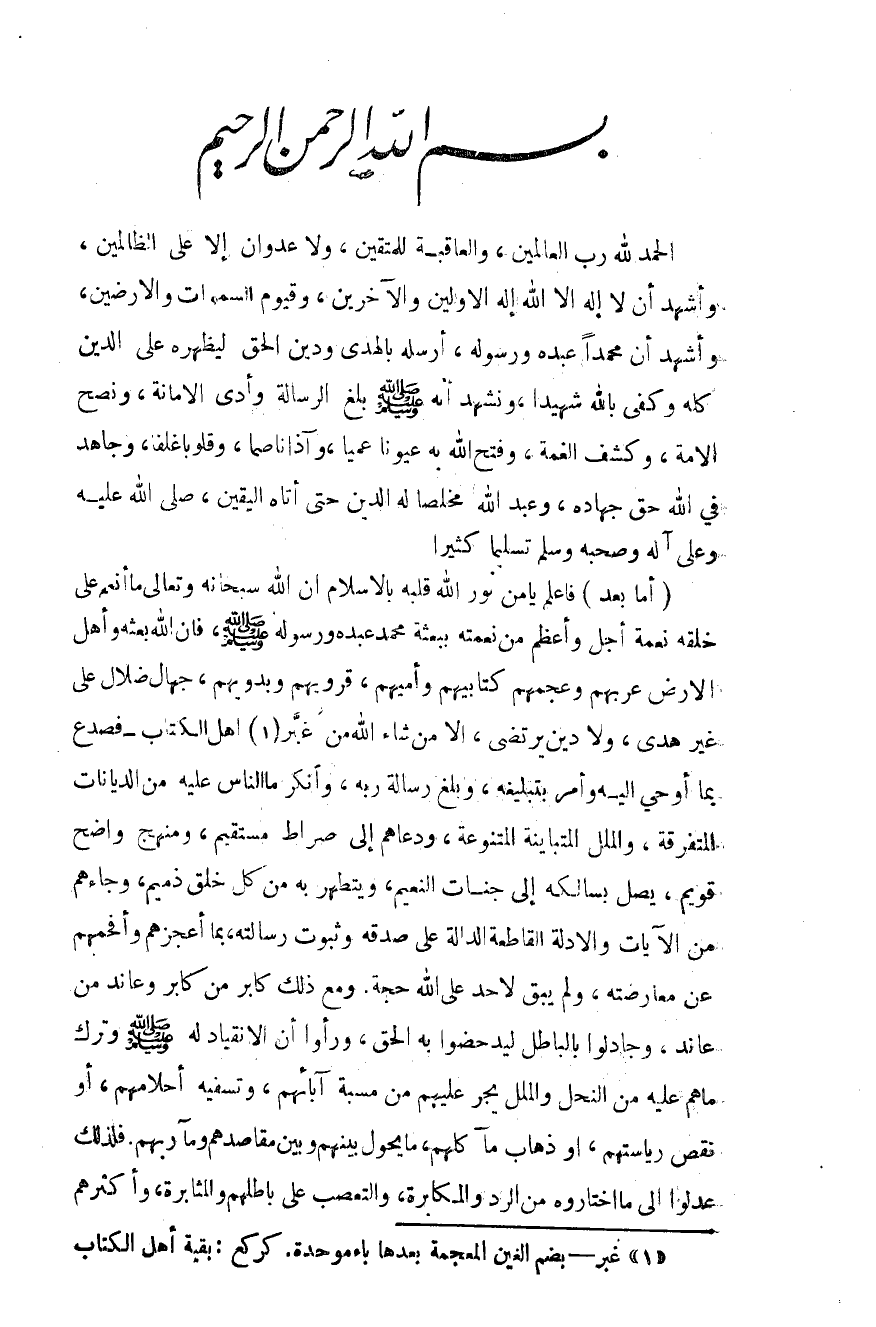 بسم الله الرحمن الرحيم
الحمد لله رب العالمين ، والعاقبـة للمتقين ، ولا عدوان إلا على الظالمين ،
وأشهد أن لا إله الا الله إله الاولين والآخرين ، وقيوم السموات والارضين،
وأشهد أن محمداً عبده ورسوله ، أرسله بالهدى ودين الحق ليظهره على الدين
كله وكفى بالله شهيدا ،ونشهد أنه ﷺ بلغ الرسالة وأدى الامانة ، ونصح
الامة ، وكشف الغمة ، وفتح الله به عيونا عميا ،وآذانا صما ، وقلوبا غلفا، وجاهد
في الله حق جهاده ، وعبد الله مخلصا له الدين حتى أتاه اليقين ، صلى الله عليـه
وعلى آله وصحبه وسلم تسليما كثيرا
( أما بعد ) فاعلم يامن نور الله قلبه بالاسلام ان الله سبحانه وتعالى ما أنعم على
خلقه نعمة أجل وأعظم من نعمته ببعثة محمد عبده ورسوله ﷺ ، فان الله بعثه وأهل
الارض عربهم وعجمهم كتابيهم وأميهم ، قرويهم وبدويهم ، جهال ضلال على
غير هدى ، ولا دين يرتضى ، الا من شاء الله من غبَّر (١) اهل الكتاب ـ فصدع
بما أوحي اليـه وأمر بتبليغه ، وبلغ رسالة ربه ، وأنكر ما الناس عليه من الديانات
المتفرقة ، والملل المتباينة المتنوعة ، ودعاهم إلى صراط مستقيم ، ومنهج واضح
قويم ، يصل بسالكه إلى جنـات النعيم، ويتطهر به من كل خلق ذميم، وجاءهم
من الآيات والادلة القاطعة الدالة على صدقه وثبوت رسالته، بما أعجزهم وأفحمهم
عن معارضته ، ولم يبق لاحد على الله حجة. ومع ذلك كابر من كابر وعاند من
عاند ، وجادلوا بالباطل ليدحضوا به الحق ، ورأوا أن الانقياد له ﷺ وترك
ماهم عليه من النحل والملل يجر عليهم من مسبة آبائهم ، وتسفيه أحلامهم ، أو
نقص رياستهم ، او ذهاب مآكلهم، ما يحول بينهم وبين مقاصدهم ومآربهم. فلذلك
عدلوا الى ما اختاروه من الرد والمكابرة، والتعصب على باطلهم والمثابرة، وأكثرهم
«١» غبر — بضم الغين المعجمة بعدها باء موحدة. كركع : بقية أهل الكتاب